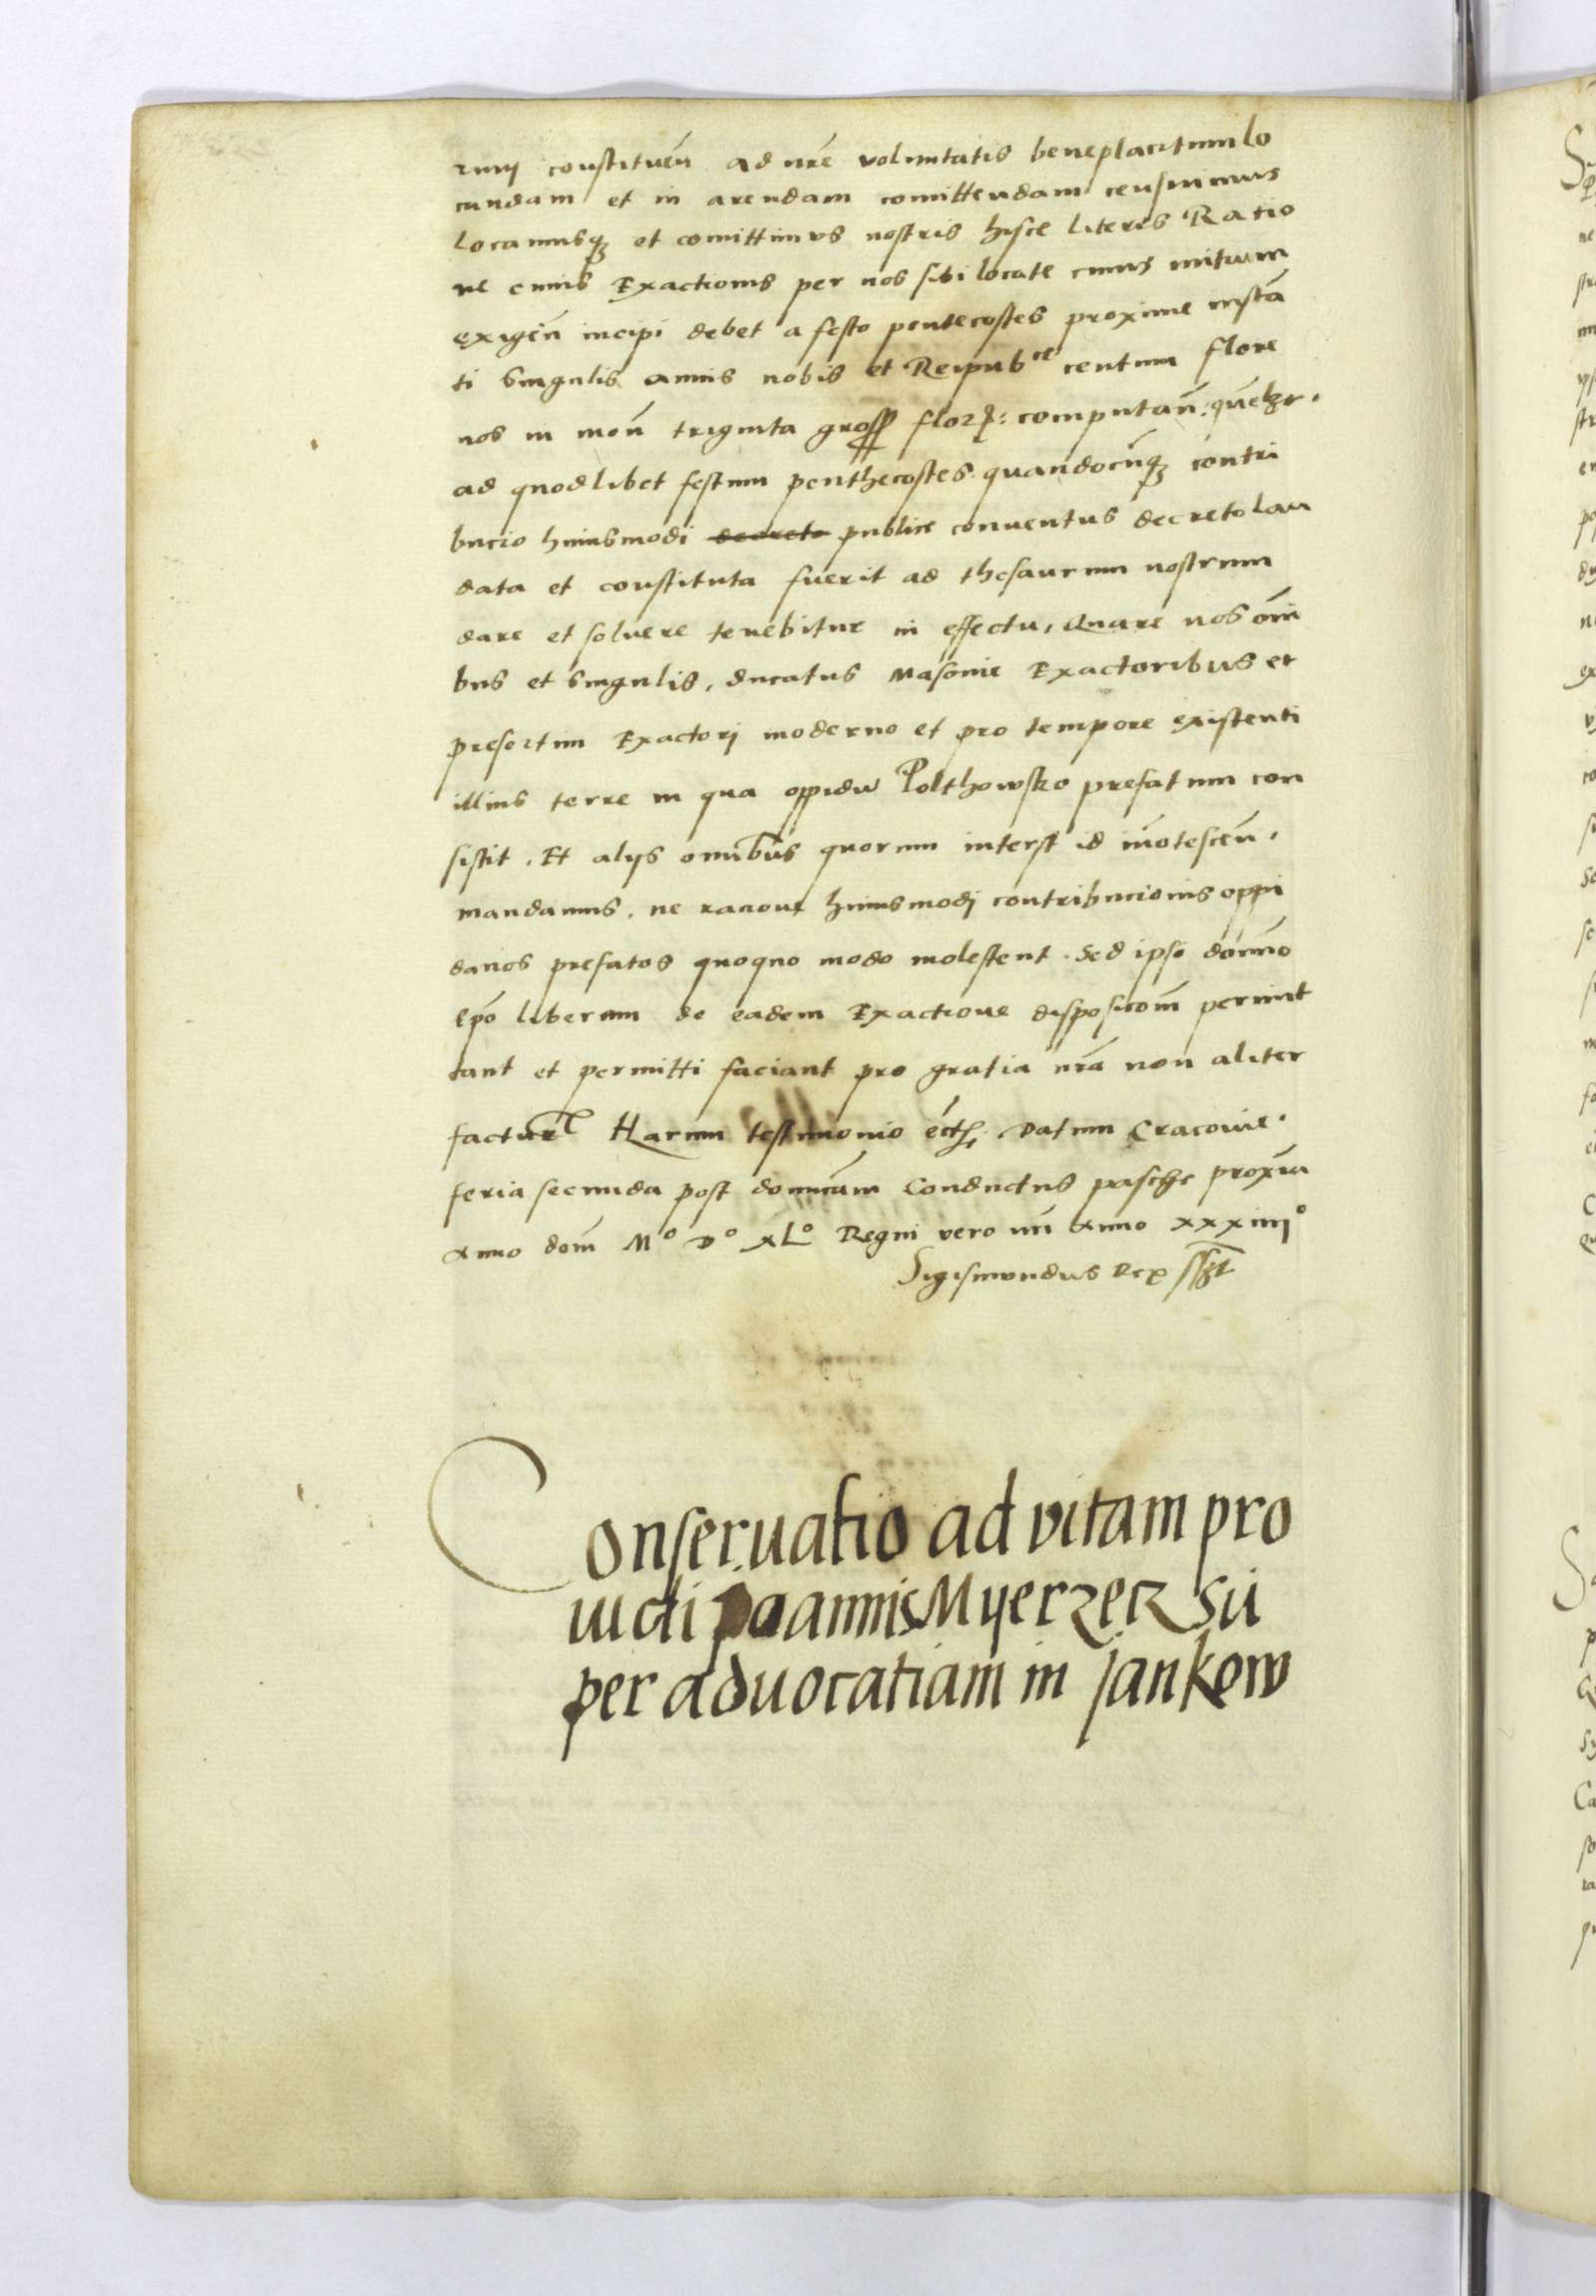 rum constituen̄ ad nr̄e voluntatis beneplacitum lo
candam et in arendam comittendam censuimus
Locamusqꝫ et comittimus nostris hisce literis Ratio
ne cuius Exactionis per nos sibi locate cuius initium
exigen̄ incipi debet a festo pentecostes proxime instan̄
ti singulis annis nobis et Reipubce centum flore
nos in mon̄ triginta gross florꝫ: computan̄.
ad quodlibet festum penthecostes quandocūqꝫ contri
bucio huiusmodi decreto publice conuentus decreto lau
data et constituta fuerit ad thesaurum nostrum
dare et soluere tenebitur in effectu, Quare nos om̄i
bus et singulis, ducatus Masouie Exactoribus et
presertim Exactorj moderno et pro tempore existenti
illius terre in qua oppidū Polthowsko prefatum con
sistit. Et alijs omībus quorum interest id īnotescen̄.
mandamus. ne racione huiusmodj contribucionis oppi
danos prefatos quoquo modo molestent. Sed ipsi domīo
Ep̄o liberam de eadem Exactione disposicōm̄ permit
tant et permitti faciant pro gratia nr̄a non aliter
factur Harum testimonio ēct Datum Cracouie.
feria secunda post domicam Conductus pasche proxīa
Anno dom̄ Mo Do XLo Regni vero nr̄i Anno XXXIIIIo
Sigismundus Rex sszt
Conseruatio ad vitam pro
uidi Joannis Myerzeck sū
per aduocatiam in Jankow